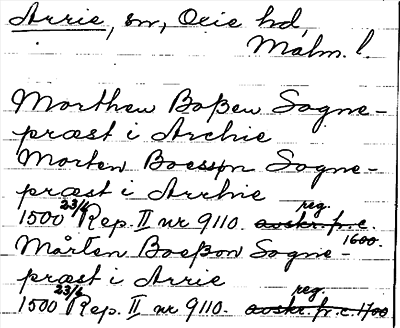 Arrie, sn, Oxie hd,
Malm. l.
Morthen Boßen Sogne-
præst i Archie
Morten Boessøn Sogne-
præst i Arrhie
1500 23/6 Rep. II nr 9110. avskr. fr. c. reg. 1600.
Mårten Boeßon Sogne-
præst i Arrie
1500 23/6 Rep. II nr 9110. avskr. fr. c. 1700 reg.